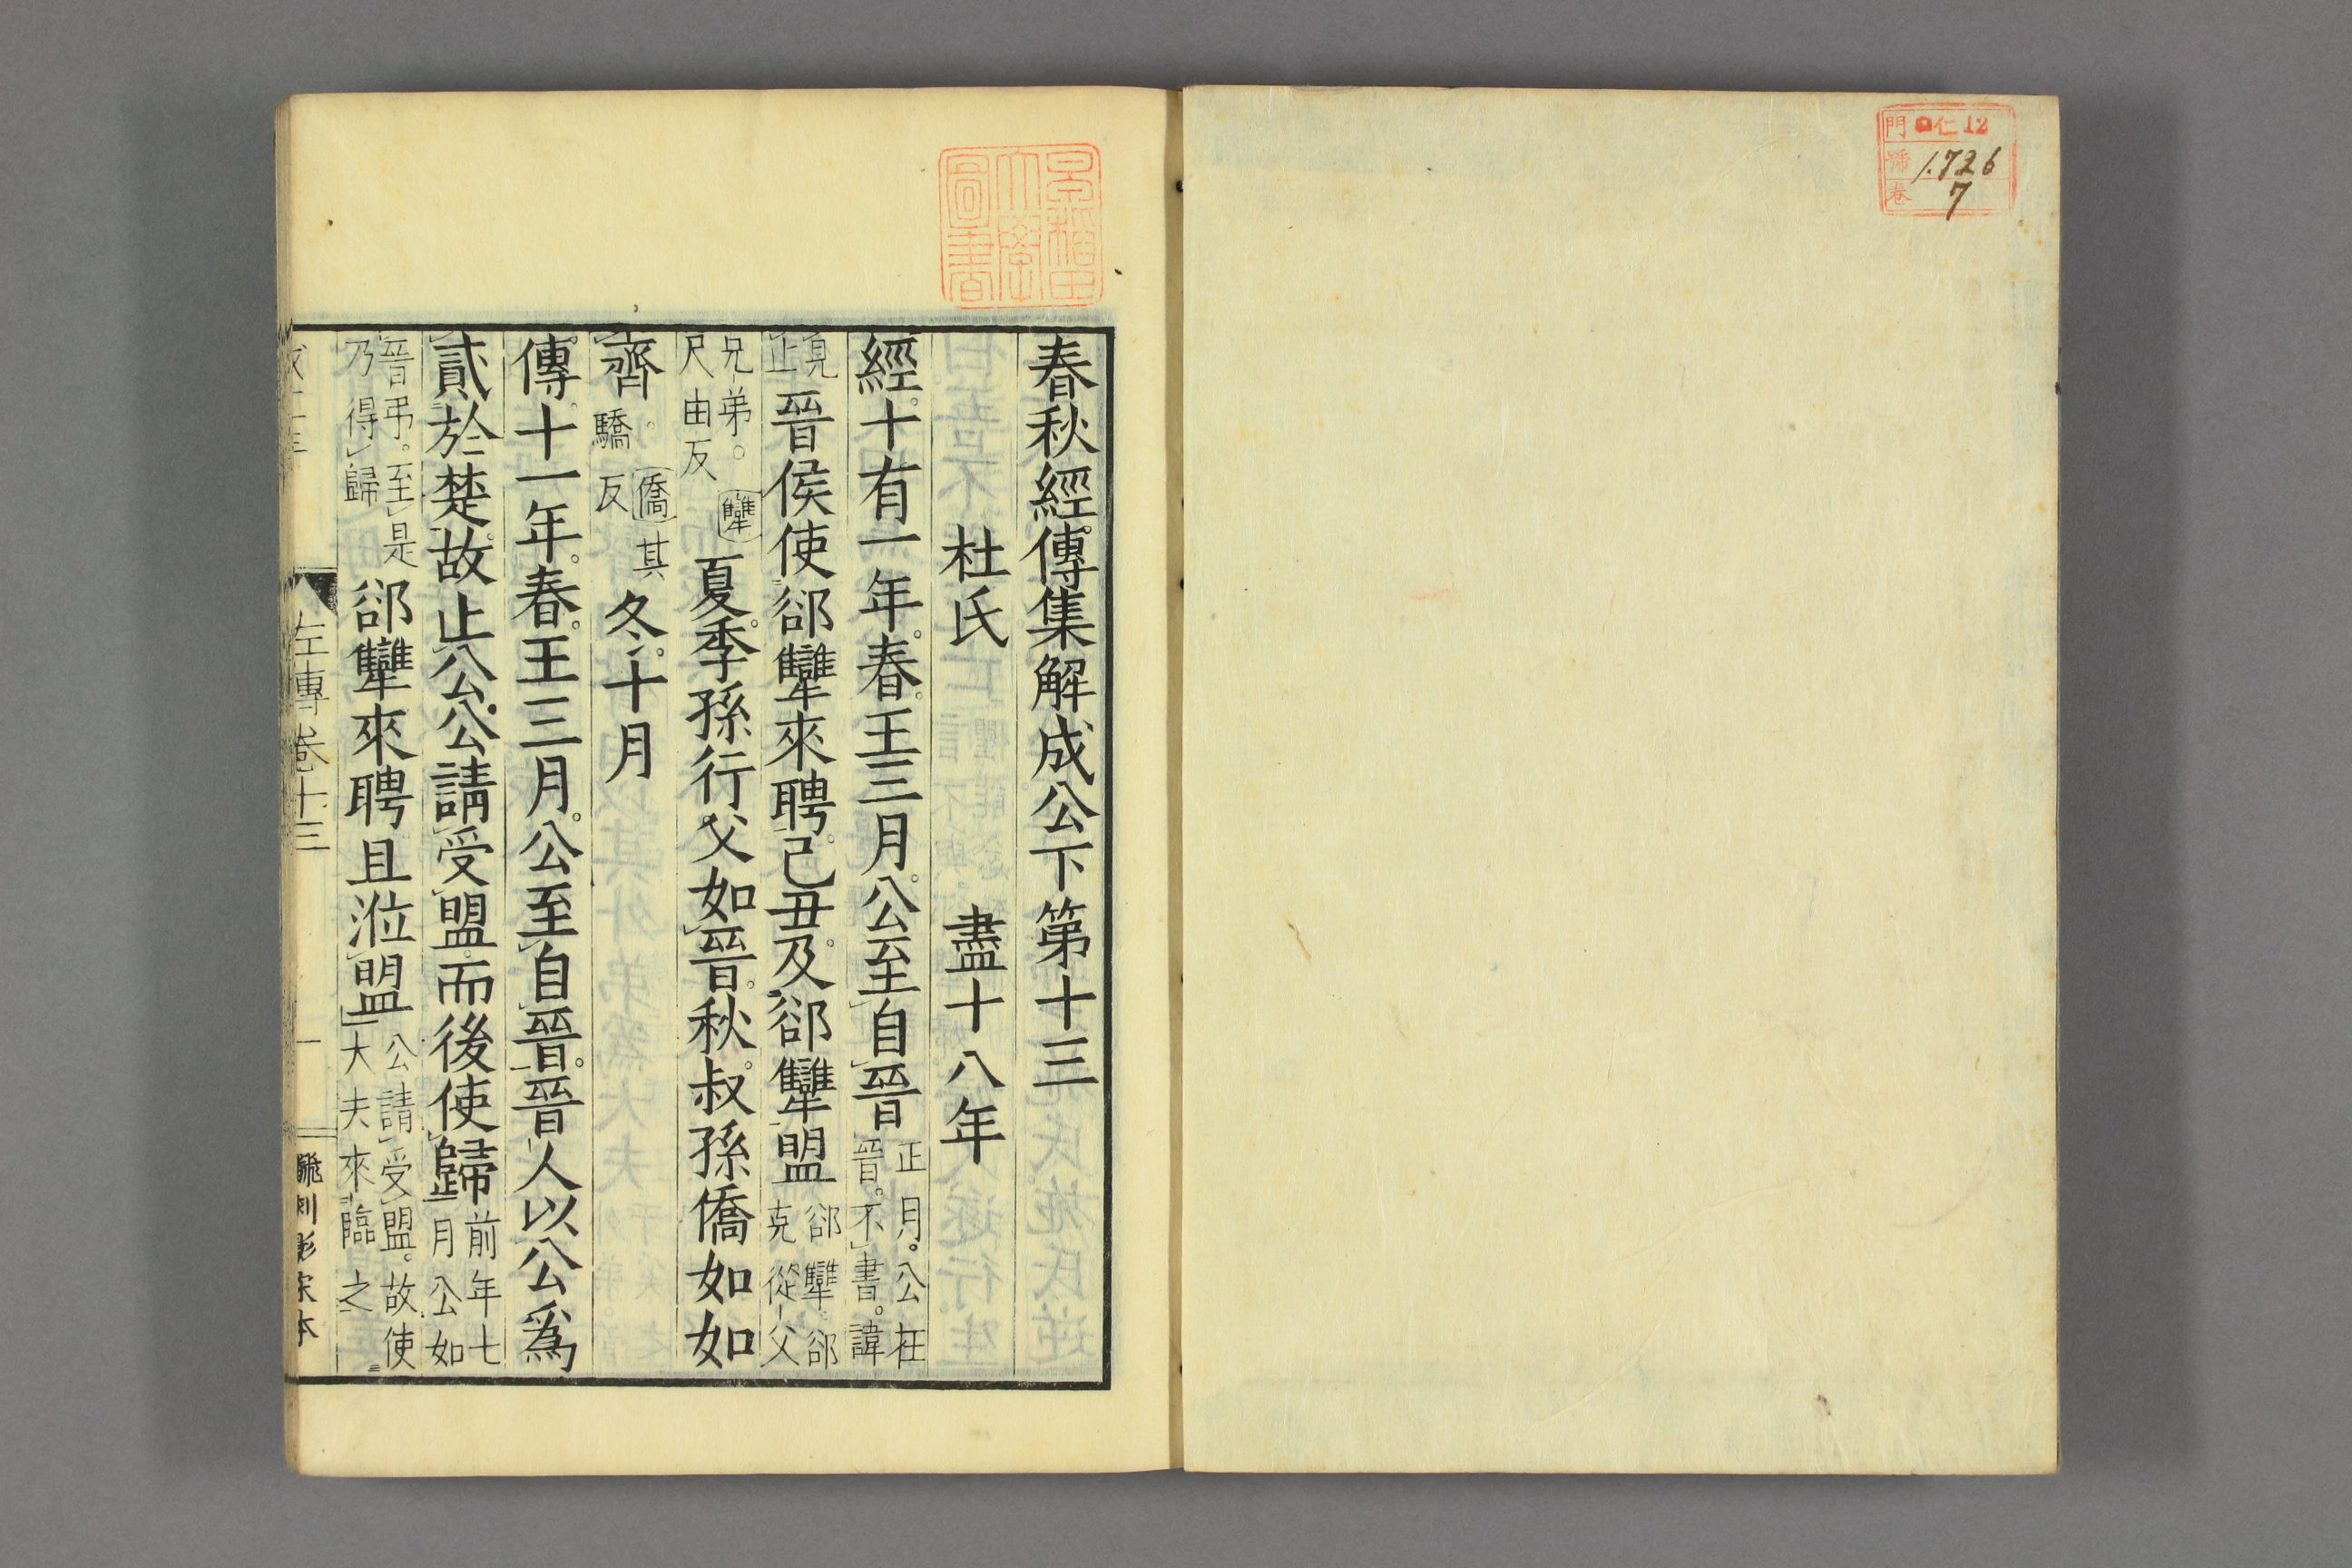 門 仁12
號 1726
卷 7
早稲田大學圖書
春秋經傳集解成公下第十三
杜氏 盡十八年
經。十有一年。春。王三月。公至自晉 正月。公在晉。不書。諱
見止 晉侯使郤犫來聘。己丑。及郤犫盟 郤犫。郤克從父
兄弟。○犫尺由反 夏。季孫行父如晉。秋。叔孫僑如如
齊。○僑其驕反 冬。十月
傳。十一年。春。王三月。公至自晉。晉人以公爲
貳於楚。故止公。公請受盟。而後使歸 前年七月公如
晉弔。至是乃得歸 郤犫來聘且涖盟 公請受盟。故使大夫來臨之
左傳卷十三 一